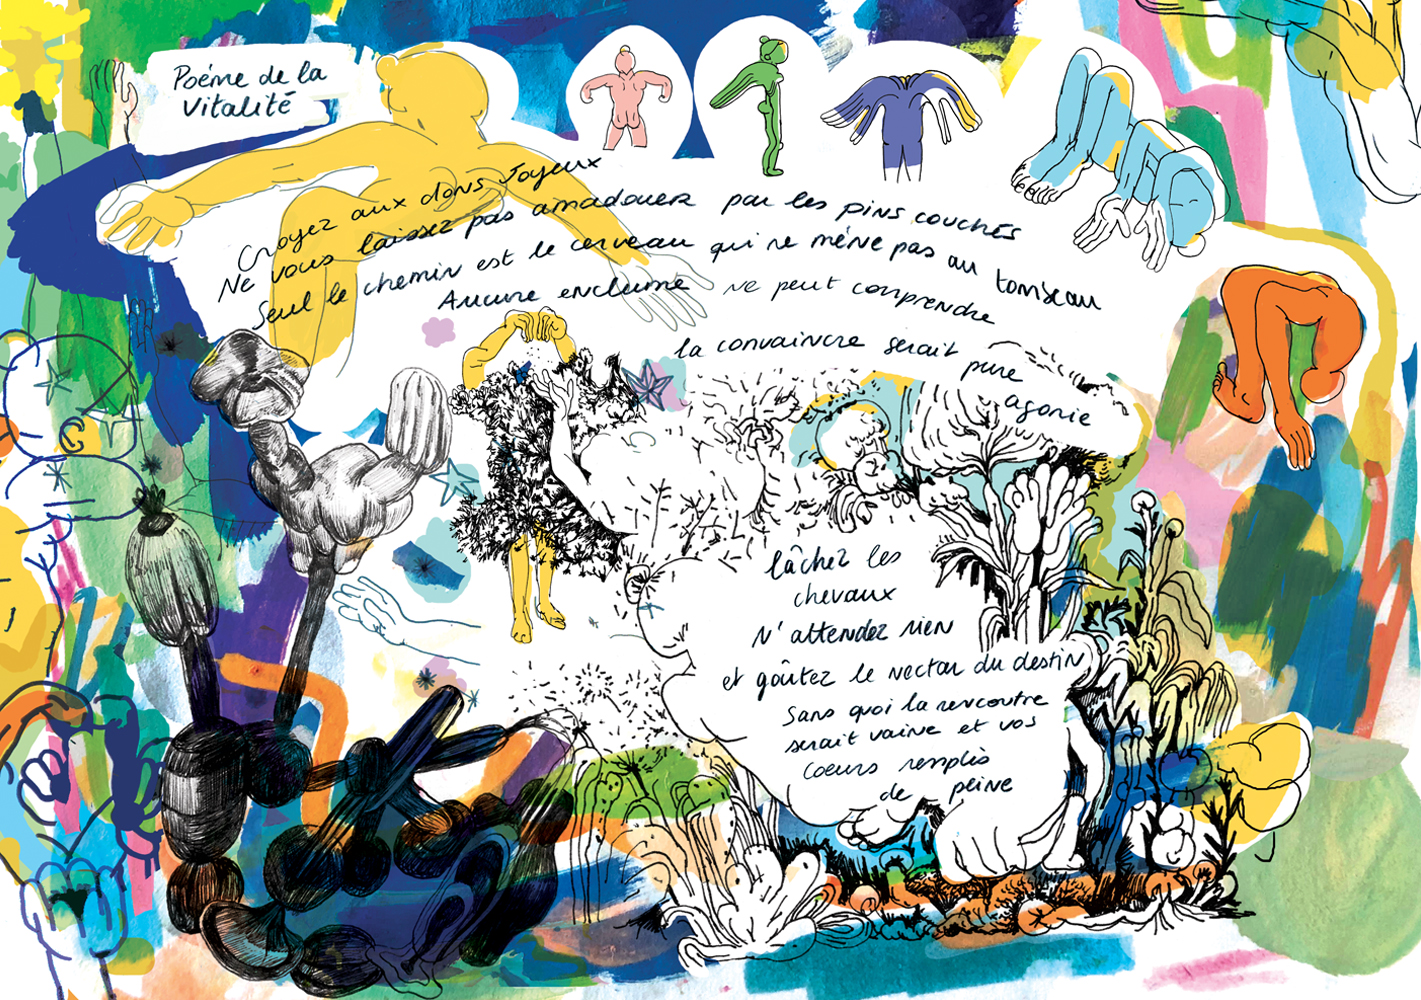 Poéme de la
Vitalité
Croyez aux dons Joyeux
Ne vous laissez pas amadouer par les pins couchés
Seul le chemin est le cerveau qui ne méne pas au tombeau
Aucune enclume ne peut comprendre
la convaincre serait pure
agonie
lâchez les
chevaux
N'attendez rien
et goûtez le nectar du destin
Sans quoi la rencontre
serait vaine et vos
coeurs remplis
de peine